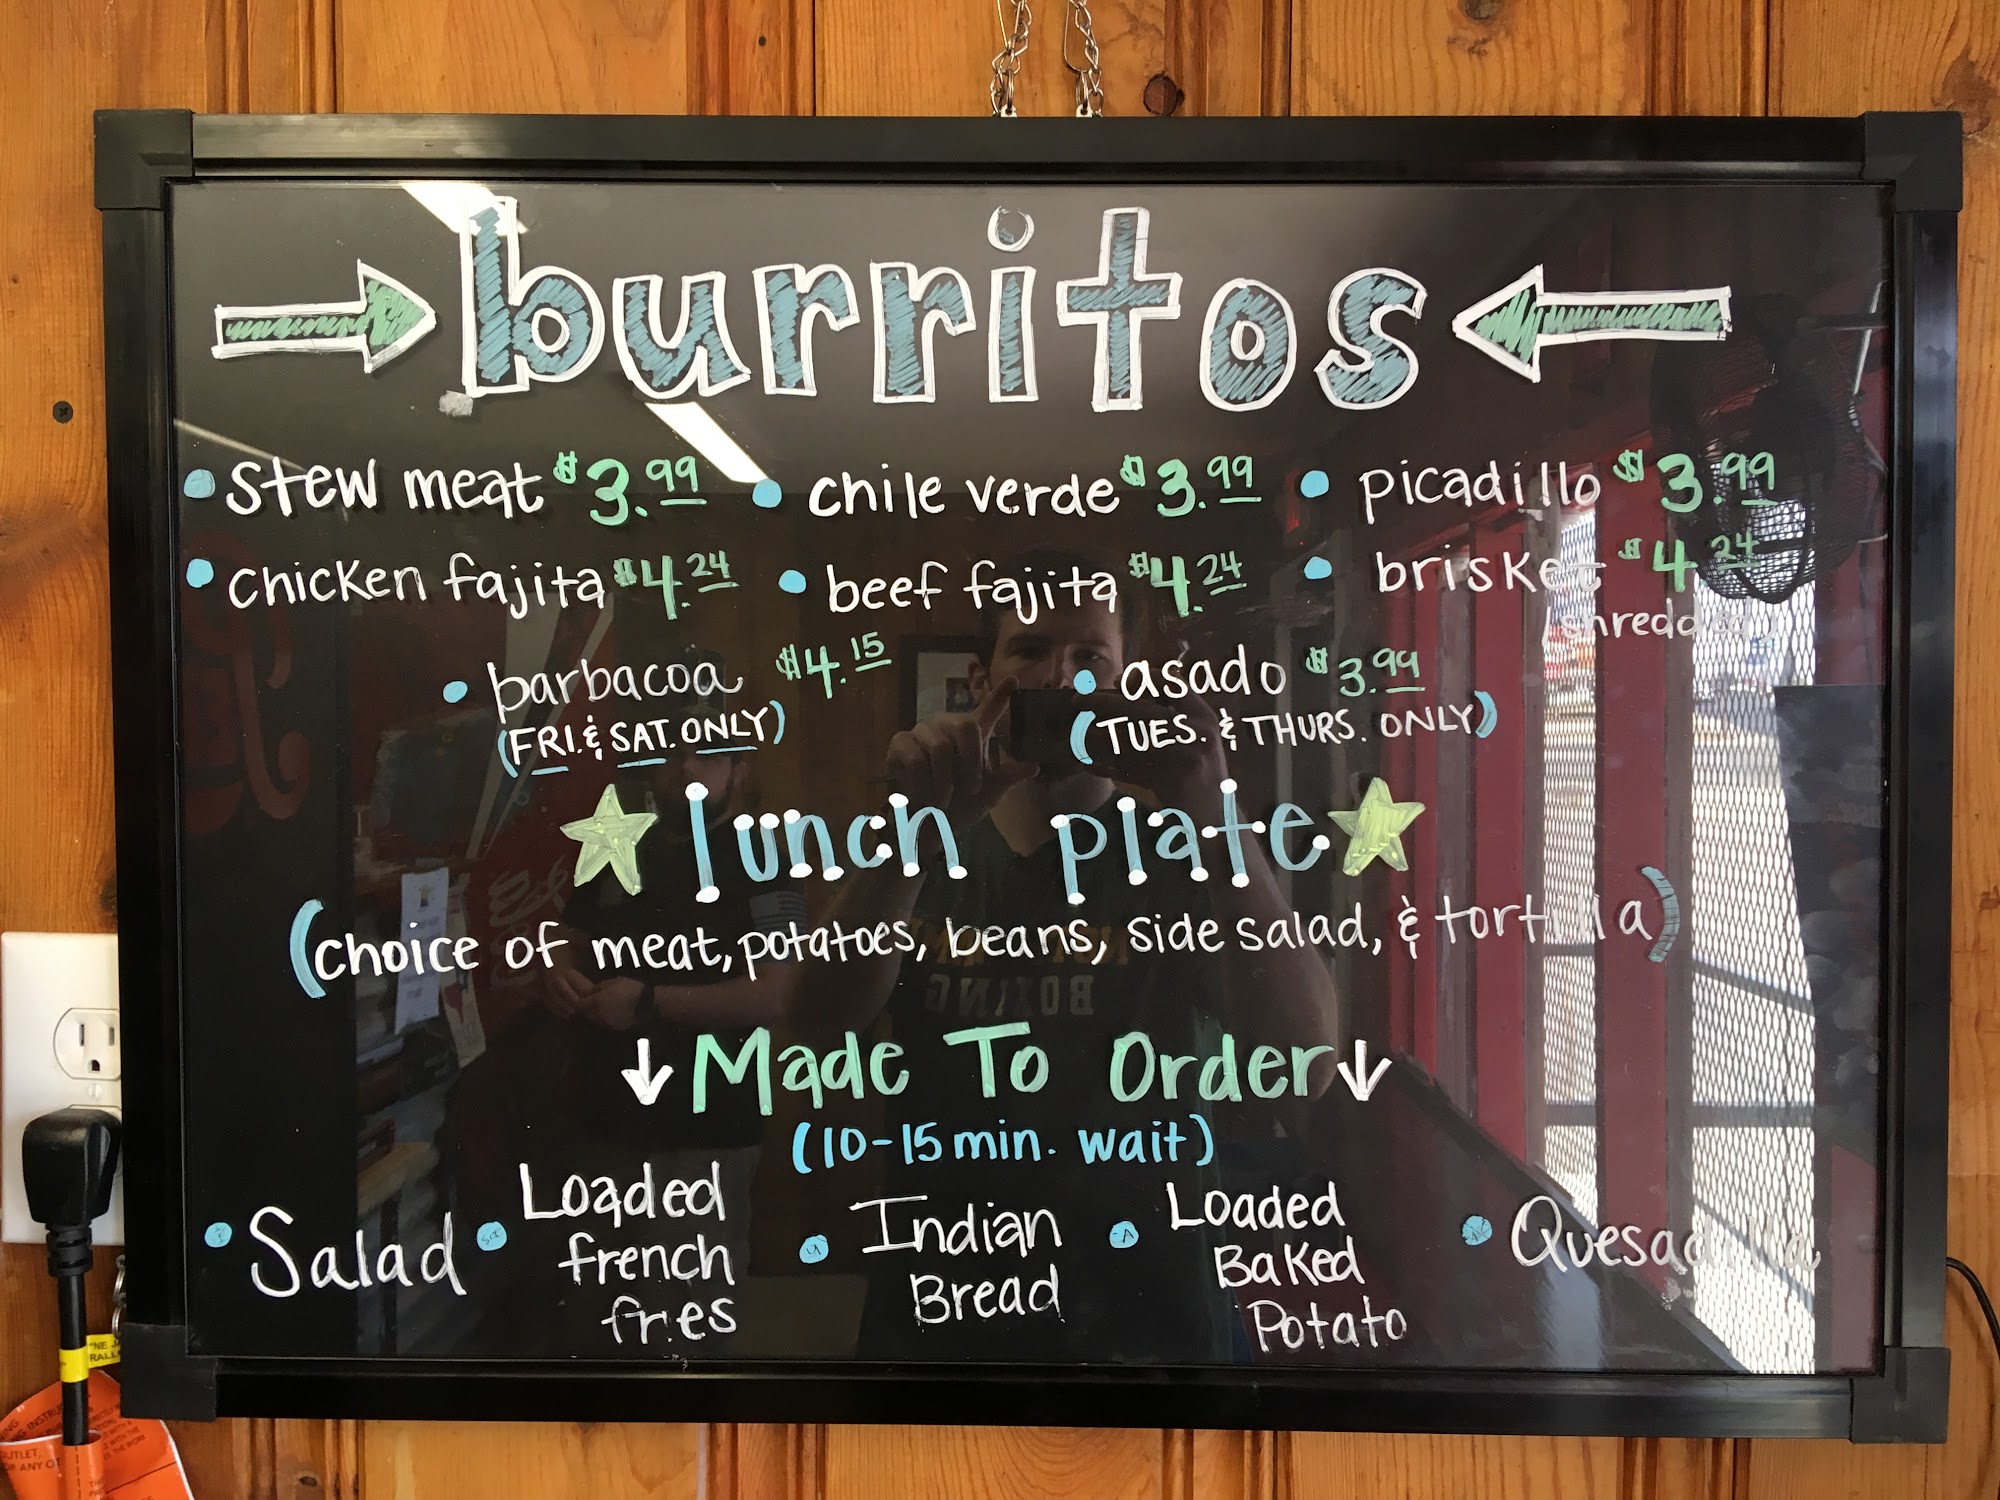 burritos
• stew meat $3.99 • chile verde $3.99 • picadillo $3.99
• chicken fajita $4.24 • beef fajita $4.24 • brisket $4.24
(shredded)
• barbacoa $4.15 • asado $3.99
(FRI. & SAT. ONLY) (TUES. & THURS. ONLY)
lunch plate
(choice of meat, potatoes, beans, side salad, & tortilla)
↓ Made To Order ↓
(10-15 min. wait)
• Salad • Loaded french fries • Indian Bread • Loaded Baked Potato • Quesadilla